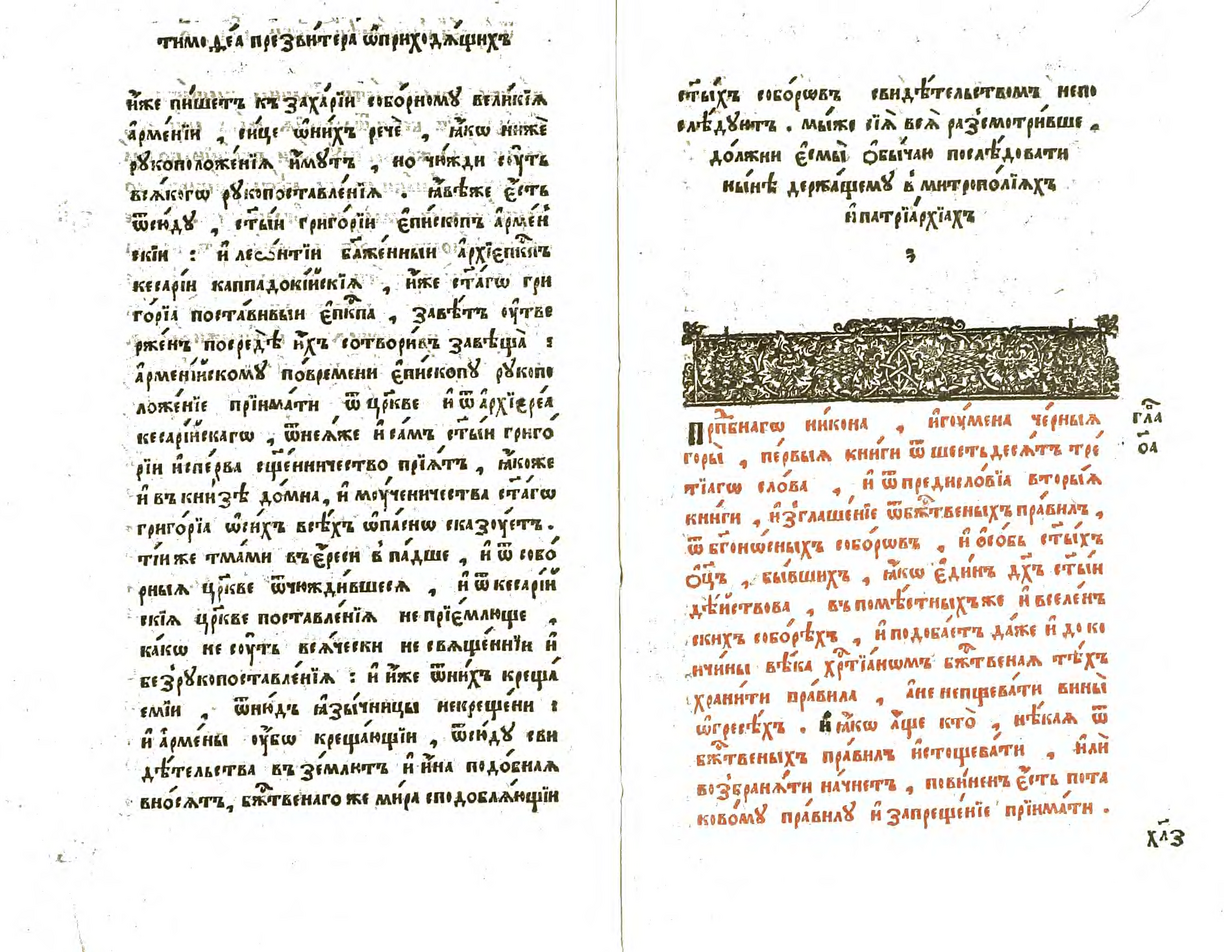 тимоѳеа презви́тера ѡ҆приходѧ́щихъ
и҆́же пи́шетъ къ заха́рїи собо́рному вели́кїѧ
а҆рме́нїи , си́це ѡ҆ни́хъ речѐ , ꙗ҆́кѡ нижѐ
рꙋкоположе́нїѧ и҆́мꙋтъ , но чю́жди сꙋ́ть
всѧ́когѡ рꙋкопоставле́нїѧ . ꙗ҆́вѣже є҆́сть
ѿсю́дꙋ , ст҃ы́и григо́рїи є҆пи́скопъ а҆рме́н
скїи : и҆ лео́нтїи бл҃же́нныи а҆рхїєпⷭ҇кпъ
кесарі́и каппадокі́йскїѧ , и҆́же ст҃а́гѡ гри
го́рїа поста́вивыи є҆пⷭ҇кпа , завѣ́тъ ᲂу҆тве
рже́нъ посредѣ̀ и҆́хъ сотвори́въ завѣща̀ :
а҆рмені́йскомꙋ повре́мени є҆пи́скопꙋ рꙋкопо
ложе́нїе прїима́ти ѿ цр҃кве и҆ ѿ а҆рхїєре́а
кесарі́йскагѡ , ѿнеѧ́же и҆ са́мъ ст҃ы́и григо́
рїи и҆спе́рва сщ҃е́нничество прїѧ́тъ , ꙗ҆́коже
и҆ въ кни́зѣ до́мна , и҆ мꙋ́ченичества ст҃а́гѡ
григо́рїа ѡ҆си́хъ всѣ́хъ ѡ҆па́снѡ сказꙋ́етъ .
ті́и же тма́ми въ є҆́реси в̾ па́дше , и҆ ѿ собо́
рныѧ цр҃кве ѿчюжди́вшесѧ , и҆ ѿ кесарі́й
скїѧ цр҃кве поставле́нїѧ не прїе́млюще ,
ка́кѡ не сꙋ́ть всѧ́чески не свѧще́ннїи и҆
без̾рꙋкопоставле́нїѧ : и҆ и҆́же ѿни́хъ креща́
емїи , ѿню́дъ ꙗ҆зы́чницы некреще́ни :
и҆ а҆рме́ны ᲂу҆́бѡ креща́ющїи , ѿсю́дꙋ сви
дѣ́тельства въ зе́млютъ и҆ и҆́на подо́бнаѧ
вно́сѧтъ , бж҃твенаго же ми́ра сподоблѧ́ющїи
ст҃ы́хъ собо́рѡвъ свидѣ́тельствомъ непо
слѣ́дꙋютъ . мы́же сїѧ̀ всѧ̀ раз̾смотри́вше ,
до́лжни є҆смы̀ ѻ҆бы́чаю послѣ́довати
ны́нѣ держа́щемꙋ в̾ митропо́лїѧхъ
и҆ патрїа́рхїахъ
з
Прп҃бнагѡ ни́кона , и҆гꙋ́мена че́рныѧ
горы̀ , пе́рвыѧ кни́ги ѿ шестьдесѧ́тъ тре́
тїагѡ сло́ва , и҆ ѿ предисло́вїа вторы́ѧ
кни́ги , и҆з̾глаше́нїе ѡ҆бж҃твеныхъ пра́вилъ ,
ѿ бг҃оно́сныхъ собо́рѡвъ , и҆ ѻ҆со́бь ст҃ы́хъ
ѻ҆ц҃ъ , бы́вшихъ , ꙗ҆́кѡ є҆ди́нъ дх҃ъ ст҃ы́и
дѣ́йствова , въ помѣ́стныхъже и҆ вселе́н
скихъ собо́рѣхъ , и҆ подоба́етъ да́же и҆ до ко
нчи́ны вѣ́ка хрⷭ҇тїа́нѡмъ бж҃твенаѧ тѣ́хъ
храни́ти пра́вила , а҆не непщева́ти вины̀
ѡ҆ гресѣ́хъ . И҆ ꙗ҆́кѡ а҆́ще кто̀ , нѣ́каѧ ѿ
бж҃твеныхъ пра́вилъ и҆стощева́ти , и҆лѝ
воз̾бранѧ́ти на́чнетъ , пови́ненъ є҆́сть пота
ково́мꙋ пра́вилꙋ и҆ запреще́нїе прїима́ти .
гла
о҃а
хл҃з